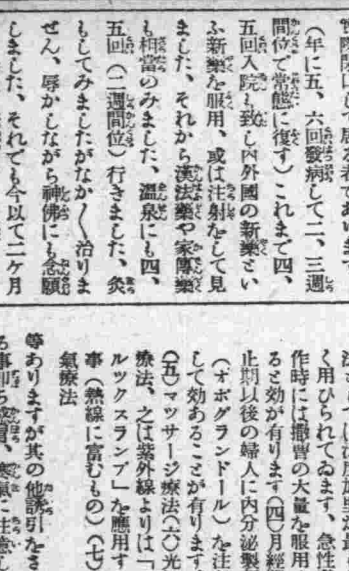 (年に五、六囘發病して二、三週
間位で常態に復す)これまで四、
五囘入院も致し内外國の新藥とい
ふ新藥を服用、或は注射をして見
ました、それから漢法藥や家傳藥
も相當のみました、溫泉にも四、
五囘(二週間位)行きました、灸
もしてみましたがなか〱治りま
せん、辱かしながら神佛にも念願
しました、それでも今以て二ケ月
く用ひられてゐます、急性
作時には撒曹の大量を服用
ると効が有ります(四)月經
止期以後の婦人に内分泌製
(オポグランドール)を注
して効あることが有ります
(五)マツサージ療法(六)光
療法、之は紫外線よりは「
ルツクスランプ」を應用す
事(熱線に富むもの)(七)
氣療法
等ありますが其の他誘引をさ